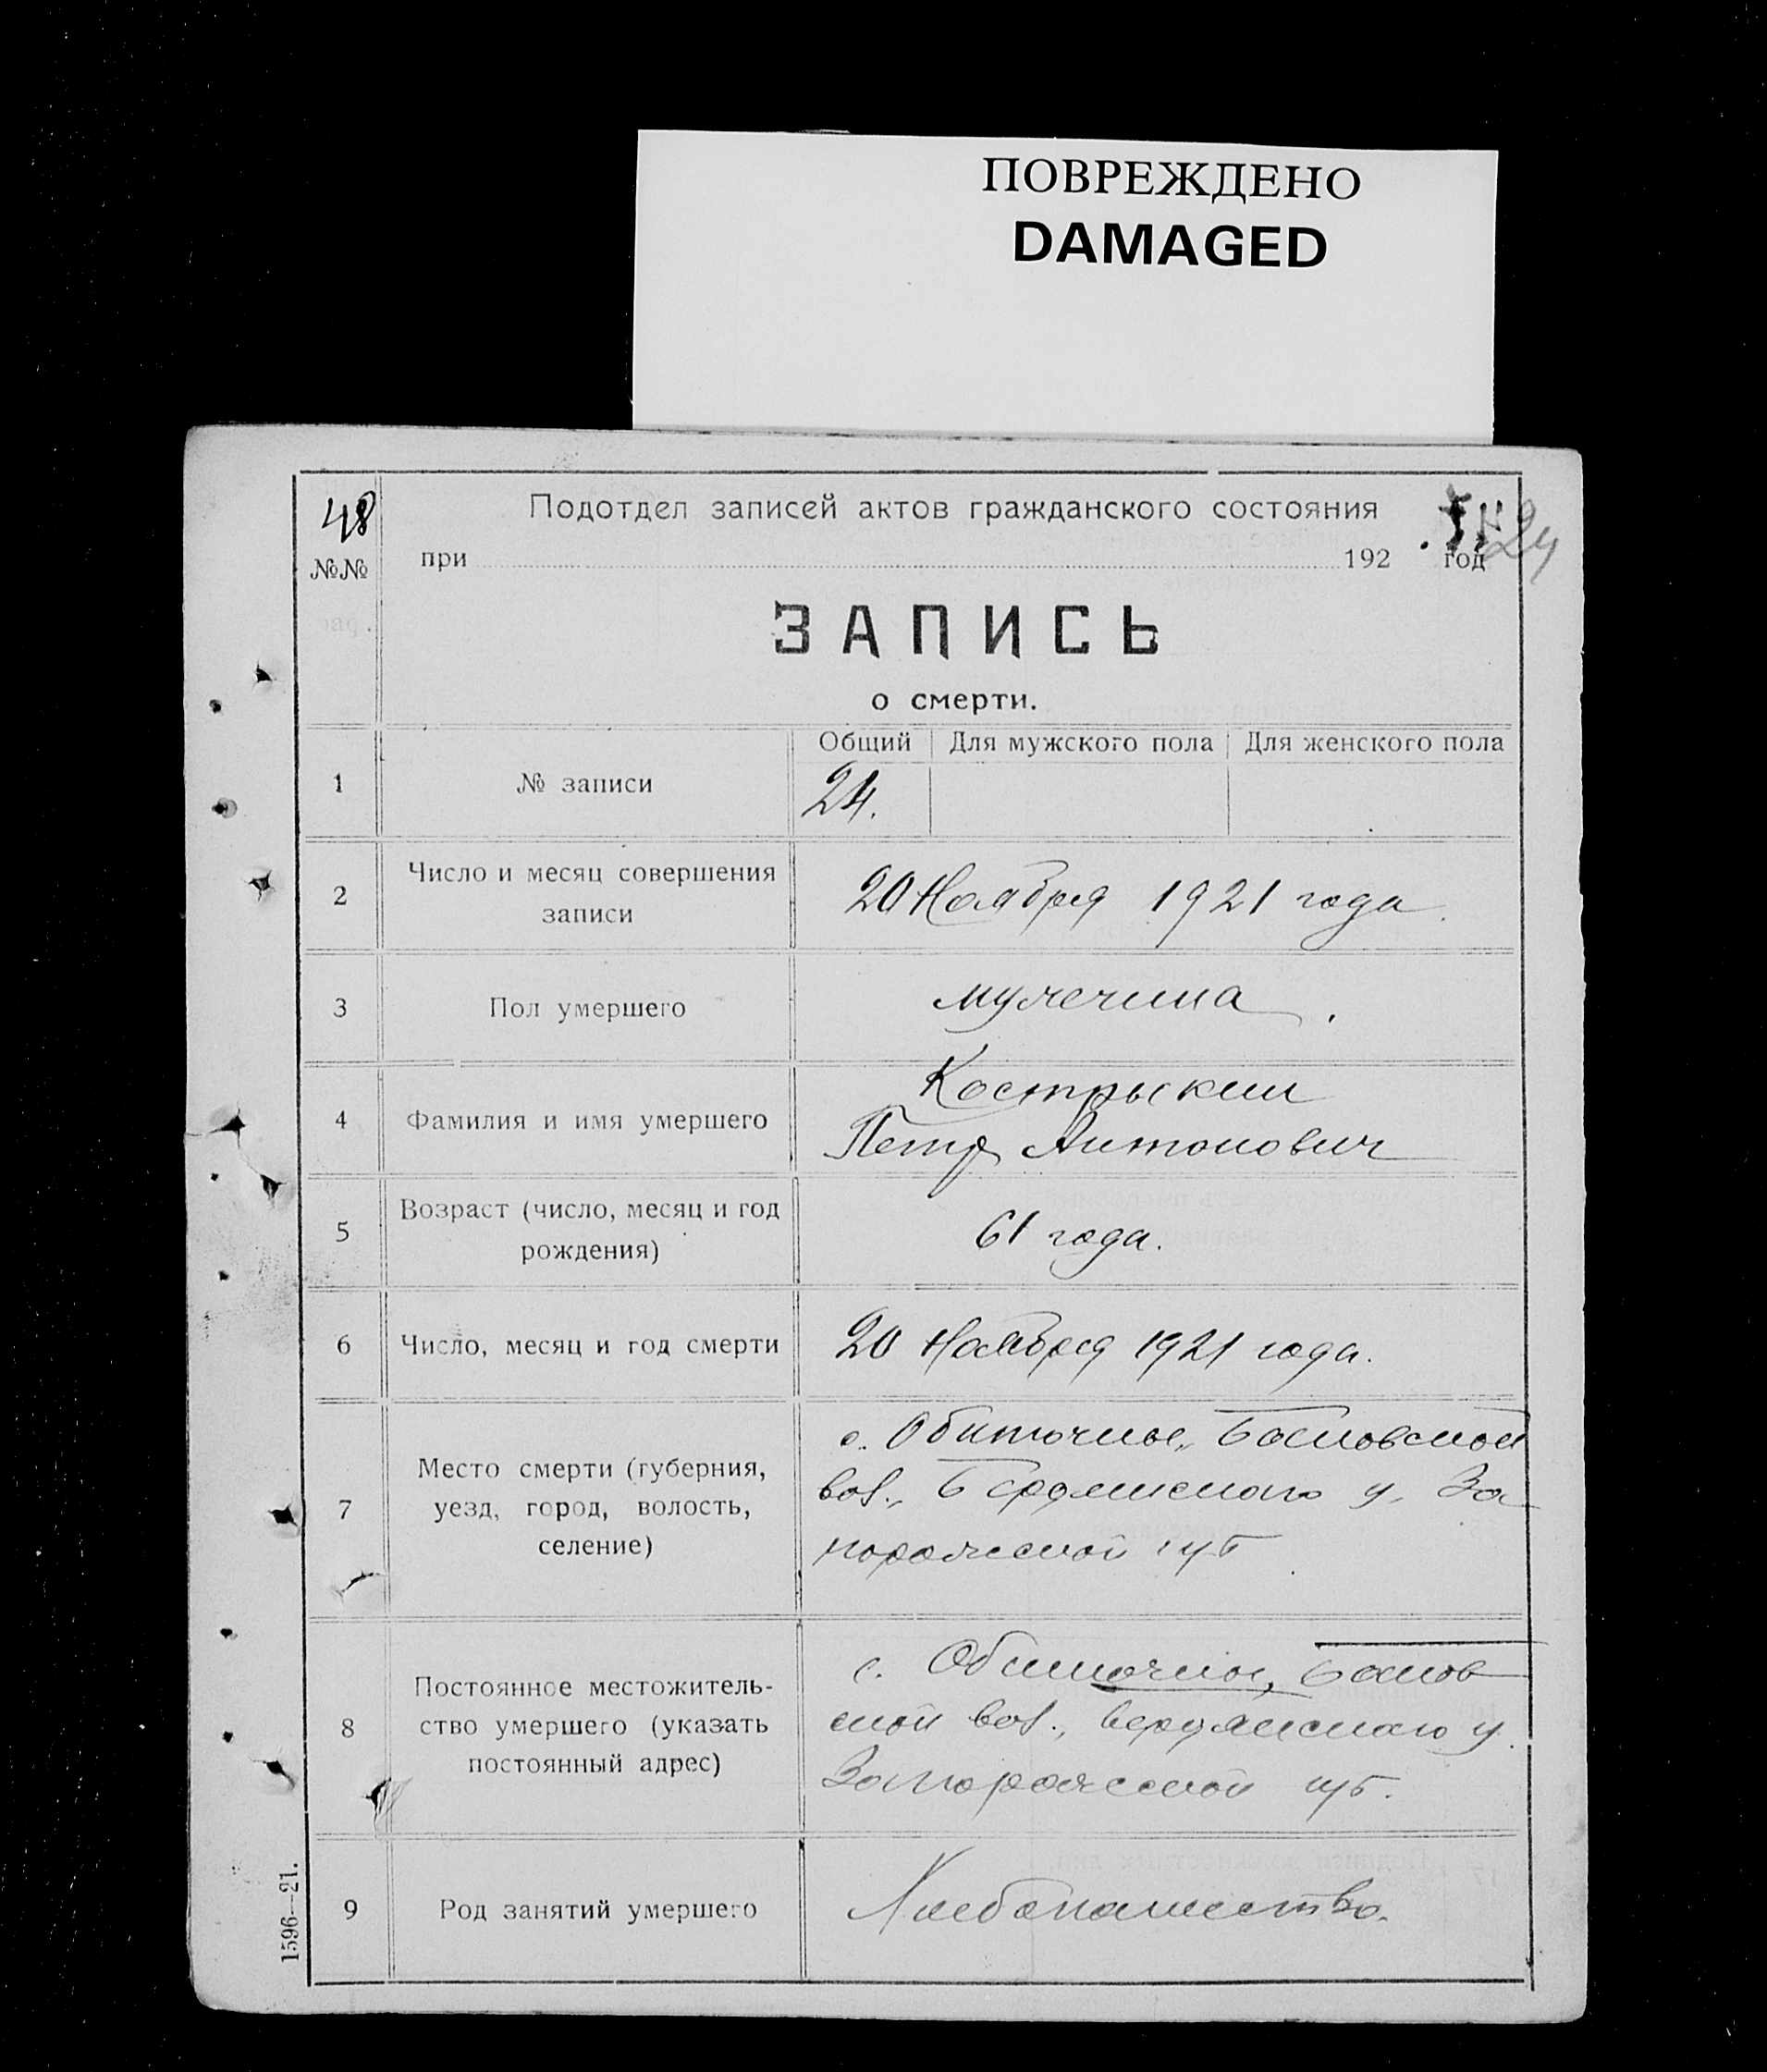 ПОВРЕЖДЕНО
DAMAGED
48
№№
Подотдел записей актов гражданского состояния
при 192 год
ЗАПИСЬ
о смерти.
Общий Для мужского пола Для женского пола
1 № записи 24.
2 Число и месяц совершения
записи
20 Ноября 1921 года.
3 Пол умершего мужчина.
4 Фамилия и имя умершего
Кострыкин
Петр Антонович
5 Возраст (число, месяц и год
рождения)
61 года.
6 Число, месяц и год смерти 20 Ноября 1921 года.
7 Место смерти (губерния,
уезд, город, волость,
селение)
с. Обиточное, Бановской
вол., Бердянского у. За
порожской губ
8 Постоянное местожитель-
ство умершего (указать
постоянный адрес)
с. Обиточное, Банов
ской вол., Бердянского у.
Запорожской губ.
9 Род занятий умершего Хлебопашество.
1596—21.